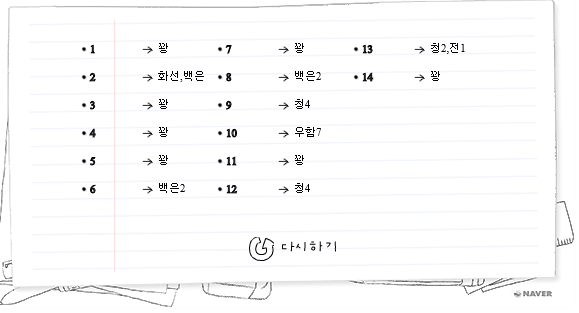 1 → 꽝 7 → 꽝 13 → 청2,전1
2 → 화선,백은 8 → 백은2 14 → 꽝
3 → 꽝 9 → 청4
4 → 꽝 10 → 우함7
5 → 꽝 11 → 꽝
6 → 백은2 12 → 청4
다시하기
NAVER